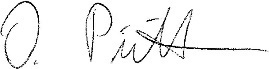 D. Pitt